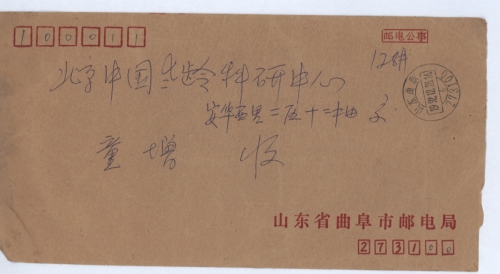 100011
邮电公事
北京中国老龄科研中心
安华西里二区十二
童增 收
山东省曲阜市邮电局
273100